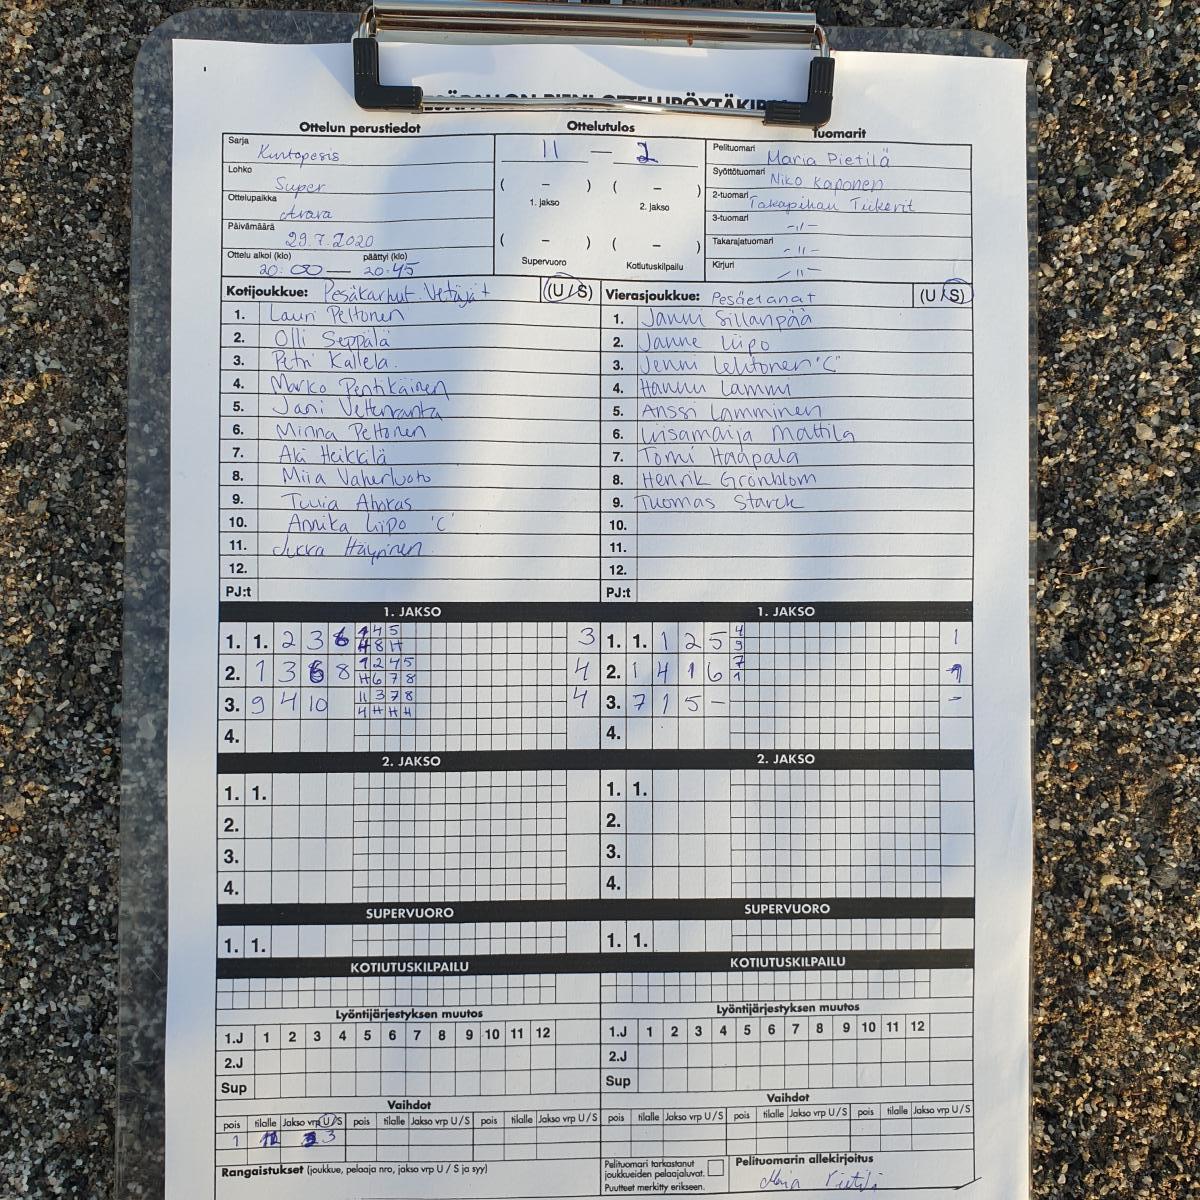 Ottelun perustiedot
Ottelutulos
Tuomarit
Sarja Kuntopesis
Lohko Super
Ottelupaikka Arara
Päivämäärä 29.7.2020
Ottelu alkoi (klo) päättyi (klo)
20:00 — 20.45
11 — 2
( – ) ( – )
1. jakso 2. jakso
( – ) ( – )
Supervuoro Kotiutuskilpailu
Pelituomari Maria Pietilä
Syöttötuomari Niko Kaponen
2-tuomari Takapihan Tiikerit
3-tuomari -11-
Takarajatuomari -11-
Kirjuri -11-
Kotijoukkue: Pesäkarhut Vetäjät (U / S)
1. Lauri Peltonen
2. Olli Seppälä
3. Petri Kallela
4. Marko Pentikäinen
5. Jani Vettenranta
6. Minna Peltonen
7. Aki Heikkilä
8. Miia Vaherluoto
9. Tuulia Ahokas
10. Annika Liipo "C"
11. Jukka Häyrinen
12.
PJ:t
Vierasjoukkue: Pesäetanat (U / S)
1. Janni Sillanpää
2. Janne Liipo
3. Jenni Lehtonen "C"
4. Hannu Lammi
5. Anssi Lamminen
6. Liisamaija Mattila
7. Tomi Haapala
8. Henrik Grönblom
9. Tuomas Starck
10.
11.
12.
PJ:t
1. JAKSO
1. 1. 2 3 6 1 4 5 3
4 8 H
2. 1 3 6 8 1 2 4 5 4
H 6 7 8
3. 9 4 10 11 3 7 8 4
4 H H H
4.
1. JAKSO
1. 1. 1 2 5 4 1
9
2. 1 4 1 6 7 1
1
3. 7 1 5 - -
4.
2. JAKSO
1. 1.
2.
3.
4.
2. JAKSO
1. 1.
2.
3.
4.
SUPERVUORO
1. 1.
SUPERVUORO
1. 1.
KOTIUTUSKILPAILU
KOTIUTUSKILPAILU
Lyöntijärjestyksen muutos
1.J 1 2 3 4 5 6 7 8 9 10 11 12
2.J
Sup
Lyöntijärjestyksen muutos
1.J 1 2 3 4 5 6 7 8 9 10 11 12
2.J
Sup
Vaihdot
pois tilalle Jakso vrp U/S pois tilalle Jakso vrp U / S pois tilalle Jakso vrp U / S
1 3
Vaihdot
pois tilalle Jakso vrp U / S pois tilalle Jakso vrp U / S pois tilalle Jakso vrp U / S
Rangaistukset (joukkue, pelaaja nro, jakso vrp U / S ja syy)
Pelituomari tarkastanut
joukkueiden pelaajaluvat.
Puutteet merkitty erikseen.
Pelituomarin allekirjoitus